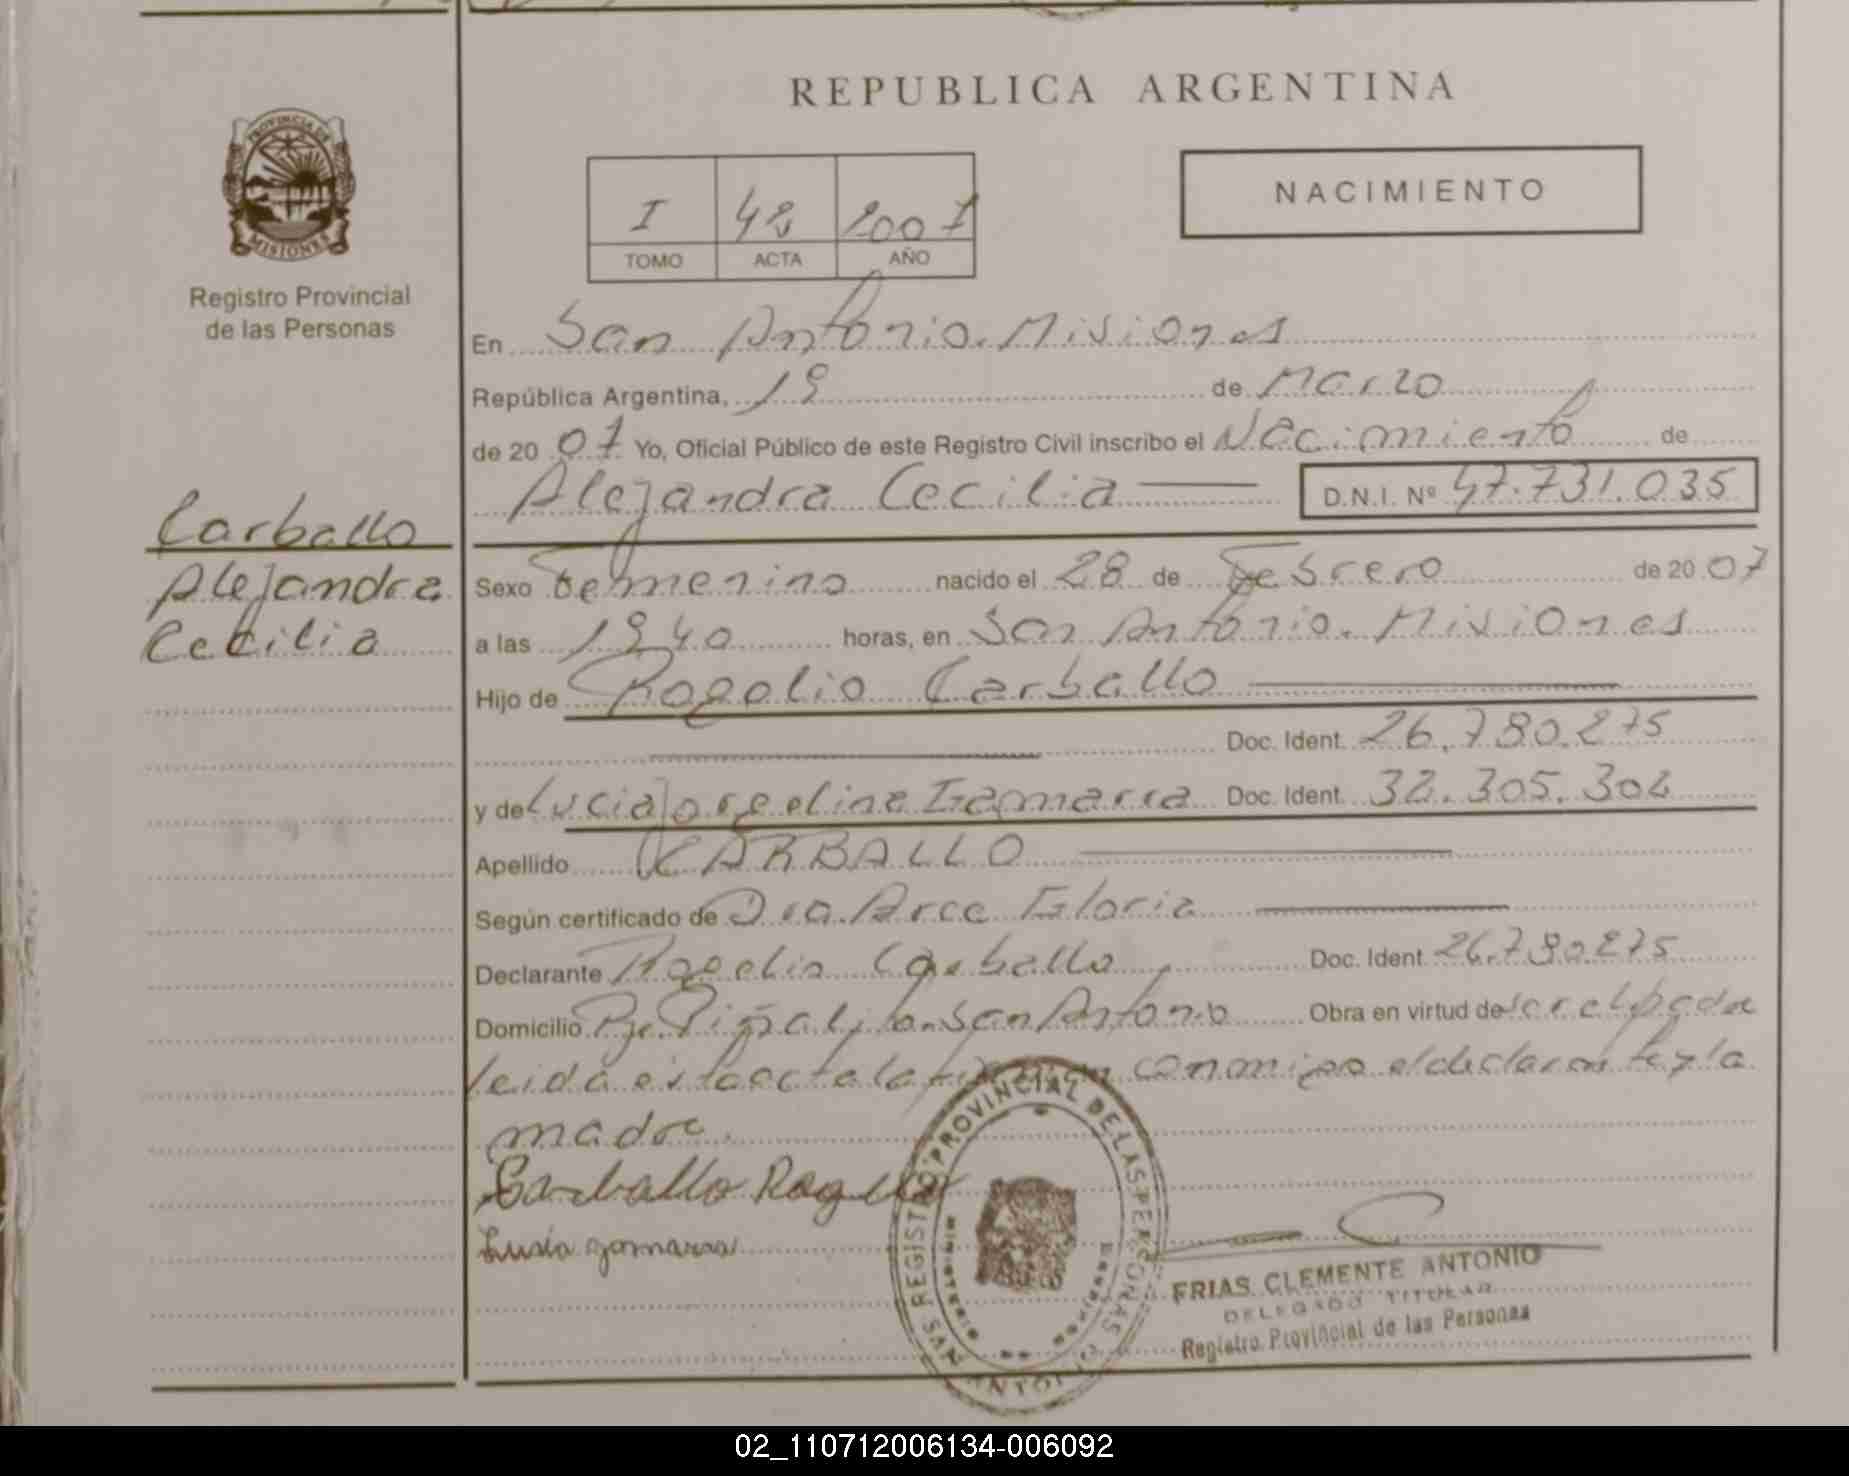 REPUBLICA ARGENTINA
PROVINCIA DE
MISIONES
Registro Provincial
de las Personas
I 48 2007
TOMO ACTA AÑO
NACIMIENTO
En San Antonio. Misiones
República Argentina, 19 de Marzo
de 20 07 Yo, Oficial Público de este Registro Civil inscribo el Nacimiento de
Alejandra Cecilia D.N.I. Nº 47.731.035
Carballo
Alejandra
Cecilia
Sexo Femenino nacido el 28 de Febrero de 20 07
a las 19 40 horas, en San Antonio. Misiones
Hijo de Rogelio Carballo
Doc. Ident. 26.780.275
y de Lucia Jorgelina Gamarra Doc. Ident. 32.305.304
Apellido CARBALLO
Según certificado de Dra. Arce Gloria
Declarante Rogelio Carballo Doc. Ident. 26.780.275
Domicilio San Antonio Obra en virtud de
leida esta acta la conmigo el declarante y la
madre.
Carballo Rogelio
Lusia gamarra
REGISTRO PROVINCIAL DE LAS PERSONAS
SAN ANTONIO
FRIAS CLEMENTE ANTONIO
DELEGADO TITULAR
Registro Provincial de las Personas
02_110712006134-006092